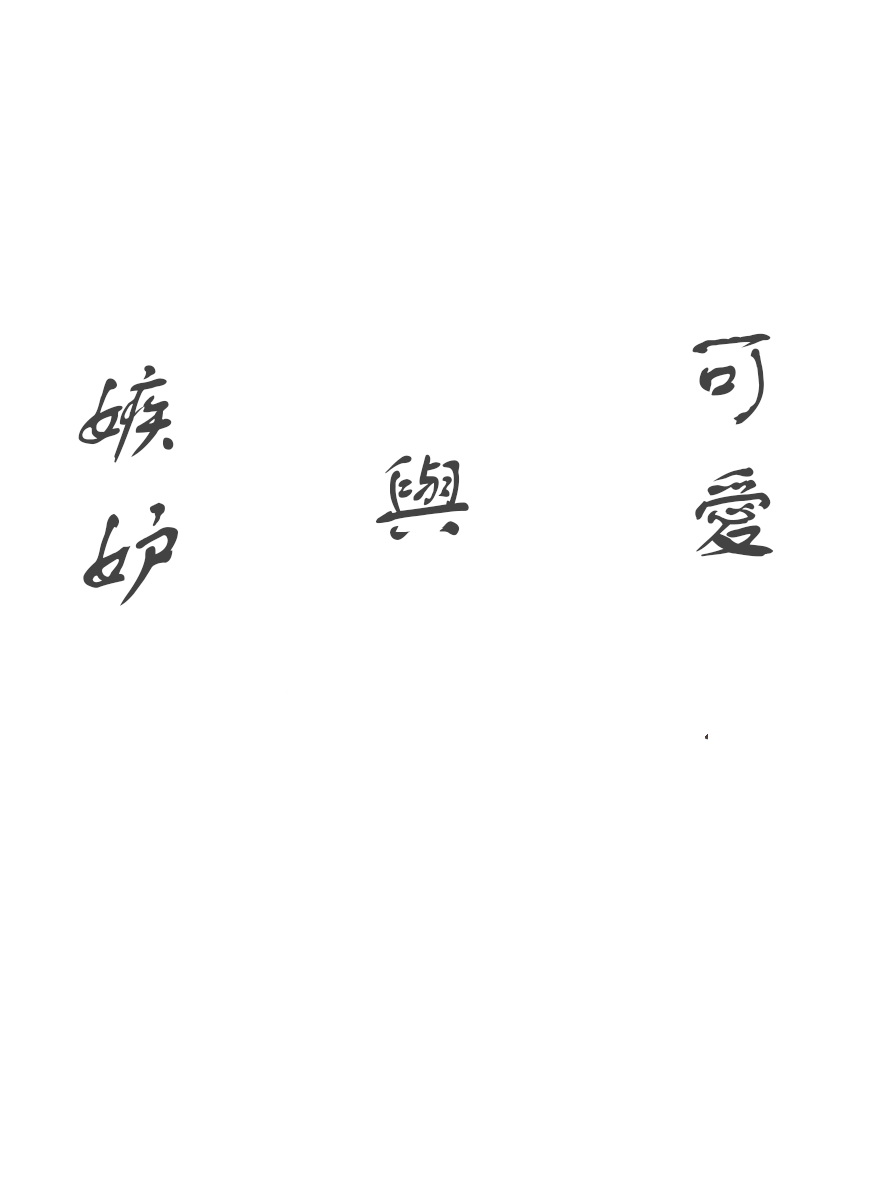 可愛
與
嫉妒